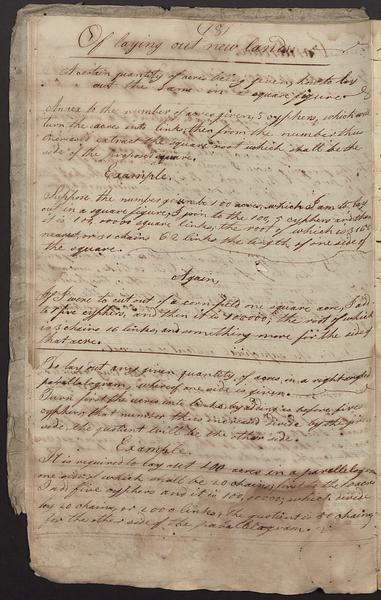 (3)
Of laying out new lands
A certain quantity of acres being given, how to lay
out the same in a square figure
Annex to the number of acres given, 5 cyphers, which will
turn the acres into links, then from the number thus
increased extract the square root which shall be the
side of the proposed square.
Example.
Suppose the number given be 100 acres, which I am to lay
out in a square figure, I join to the 100, 5 cyphers and then
it is 100,00000 square links, the root of which is 3162
nearest, or 31 chains 62 links the length of one side of
the square.
Again,
If I were to cut out of a corn field one square acre, I add
five cyphers, and then it is 100000, the root of which
is 3 chains 16 links, and something more for the side of
that acre.
To lay out any given quantity of acres, in a right angled
parallelogram, whereof one side is given.
Turn first the acres into links by adding as before, five
cyphers, that number thus increased divide by the given
side, the quotient will be the other side.
Example
It is required to lay out 100 acres in a parallelogram
one side of which shall be 20 chains, first to the 100 acres
I add five cyphers and it is 100,00000, which divide
by 20 chains, or 2000 links, the quotient is 50 chains
for the other side of the parallelogram.